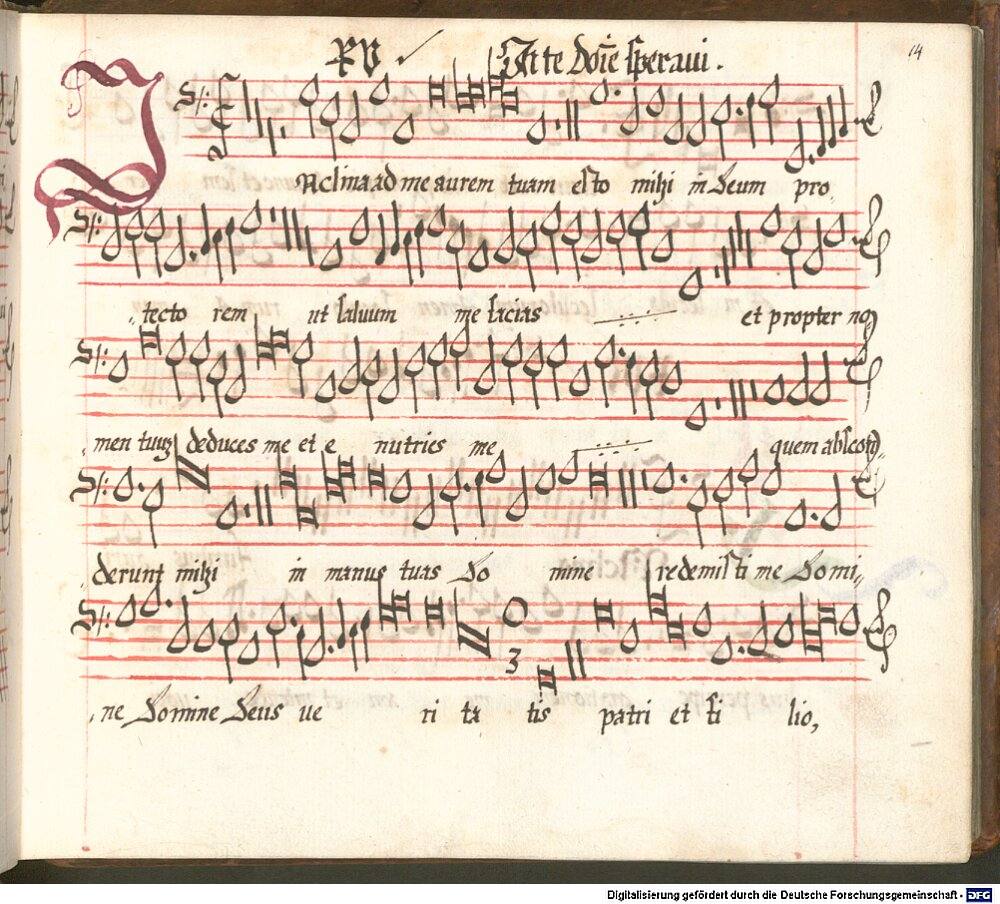 XV. In te dne speravi.
14
INclina ad me aurem tuam esto mihi in Deum pro,
tecto rem ut salvum me facias et propter no
men tuum deduces me et e nutries me quem absco
derunt mihi in manus tuas Do mine redemisti me Domi,,
3
ne Domine Deus ve ri ta tis patri et fi lio,
Digitalisierung gefördert durch die Deutsche Forschungsgemeinschaft - DFG